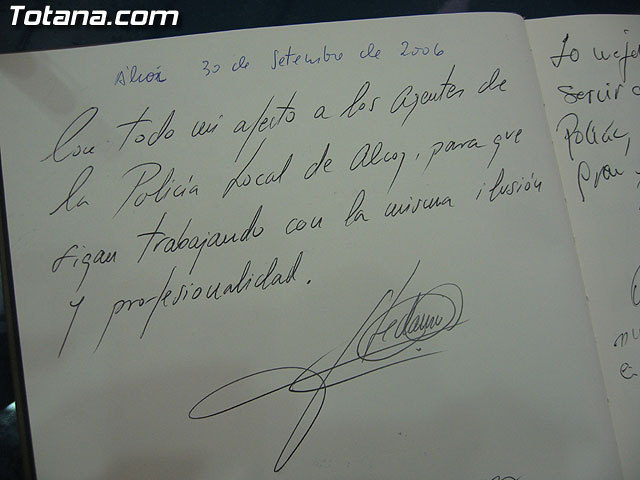 Totana.com
Alcoi 30 de Setembre de 2006
Con todo mi afecto a los Agentes de
la Policía Local de Alcoy, para que
sigan trabajando con la misma ilusión
y profesionalidad.
Lo mejor
servir
Policía,